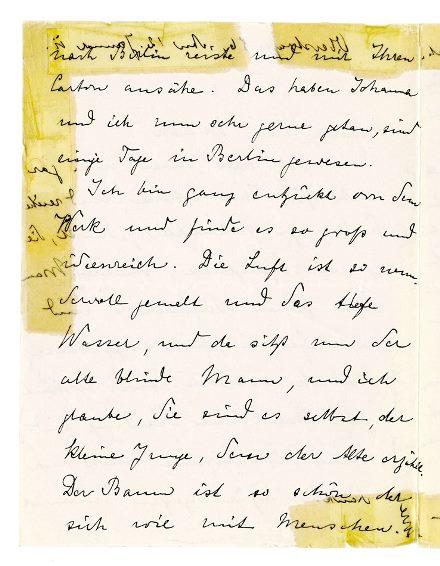 nach Berlin reiste und mir Ihren
Carton ansähe. Das haben Johanna
und ich nun sehr gerne getan, sind
einige Tage in Berlin gewesen.
Ich bin ganz entzückt von dem
Werk und finde es so groß und
ideenreich. Die Luft ist so wun-
dervoll gemalt und das tiefe
Wasser, und da sitzt nun der
alte blinde Mann, und ich
glaube, Sie sind es selbst, der
kleine Junge, dem der Alte erzählt.
Der Baum ist so schön, der
sich wie mit Menschen